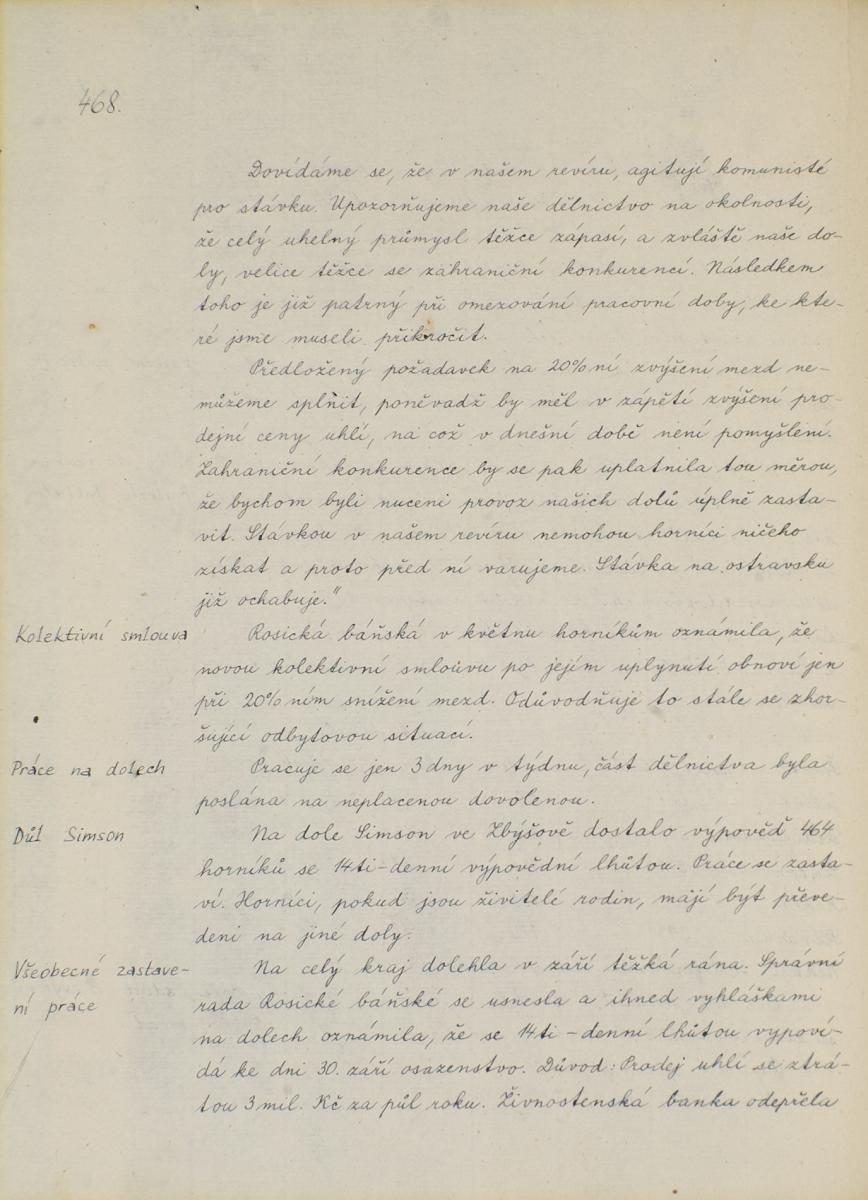 468.
Dovídáme se, že v našem revíru, agitují komunisté
pro stávku. Upozorňujeme naše dělnictvo na okolnosti,
že celý uhelný průmysl těžce zápasí, a zvláště naše do-
ly, velice těžce se zahraniční konkurencí. Následkem
toho je již patrný při omezování pracovní doby, ke kte-
ré jsme museli přikročit.
Předložený požadavek na 20%ní zvýšení mezd ne-
můžeme splnit, poněvadž by měl v zápětí zvýšení pro-
dejní ceny uhlí, na což v dnešní době není pomyšlení.
Zahraniční konkurence by se pak uplatnila tou měrou,
že bychom byli nuceni provoz našich dolů úplně zasta-
vit. Stávkou v našem revíru nemohou horníci ničeho
získat a proto před ní varujeme. Stávka na ostravsku
již ochabuje."
Kolektivní smlouva
Rosická báňská v květnu horníkům oznámila, že
novou kolektivní smlouvu po jejém uplynutí obnoví jen
při 20%ním snížení mezd. Odůvodňuje to stále se zhor-
šující odbytovou situací.
Práce na dolech
Pracuje se jen 3 dny v týdnu, část dělnictva byla
poslána na neplacenou dovolenou.
Důl Simson
Na dole Simson ve Zbýšově dostalo výpověď 464
horníků se 14ti-denní výpovědní lhůtou. Práce se zasta-
ví. Horníci, pokud jsou živitelé rodin, mají být převe-
deni na jiné doly.
Všeobecné zastave-
ní práce
Na celý kraj dolehla v září těžká rána. Správní
rada Rosické báňské se usnesla a ihned vyhláškami
na dolech oznámila, že se 14ti-denní lhůtou vypoví-
dá ke dni 30. září osazenstvo. Důvod: Prodej uhlí se ztrá-
tou 3 mil. Kč za půl roku. Živnostenská banka odepřela